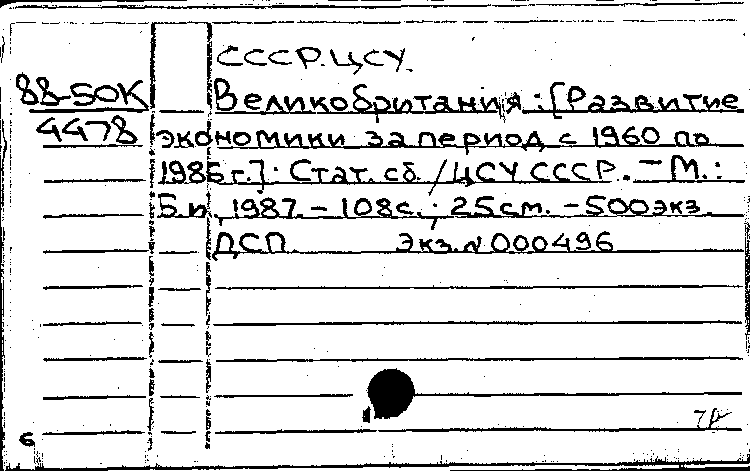 СССР. ЦСУ.
88-50К Великобритания : [Развитие
4478 экономики за период с 1960 по
1985 г.] : Стат. сб. / ЦСУ СССР. - М. :
Б.и., 1987. - 108с. ; 25см. - 500экз.
ДСП. Экз. № 000496
6